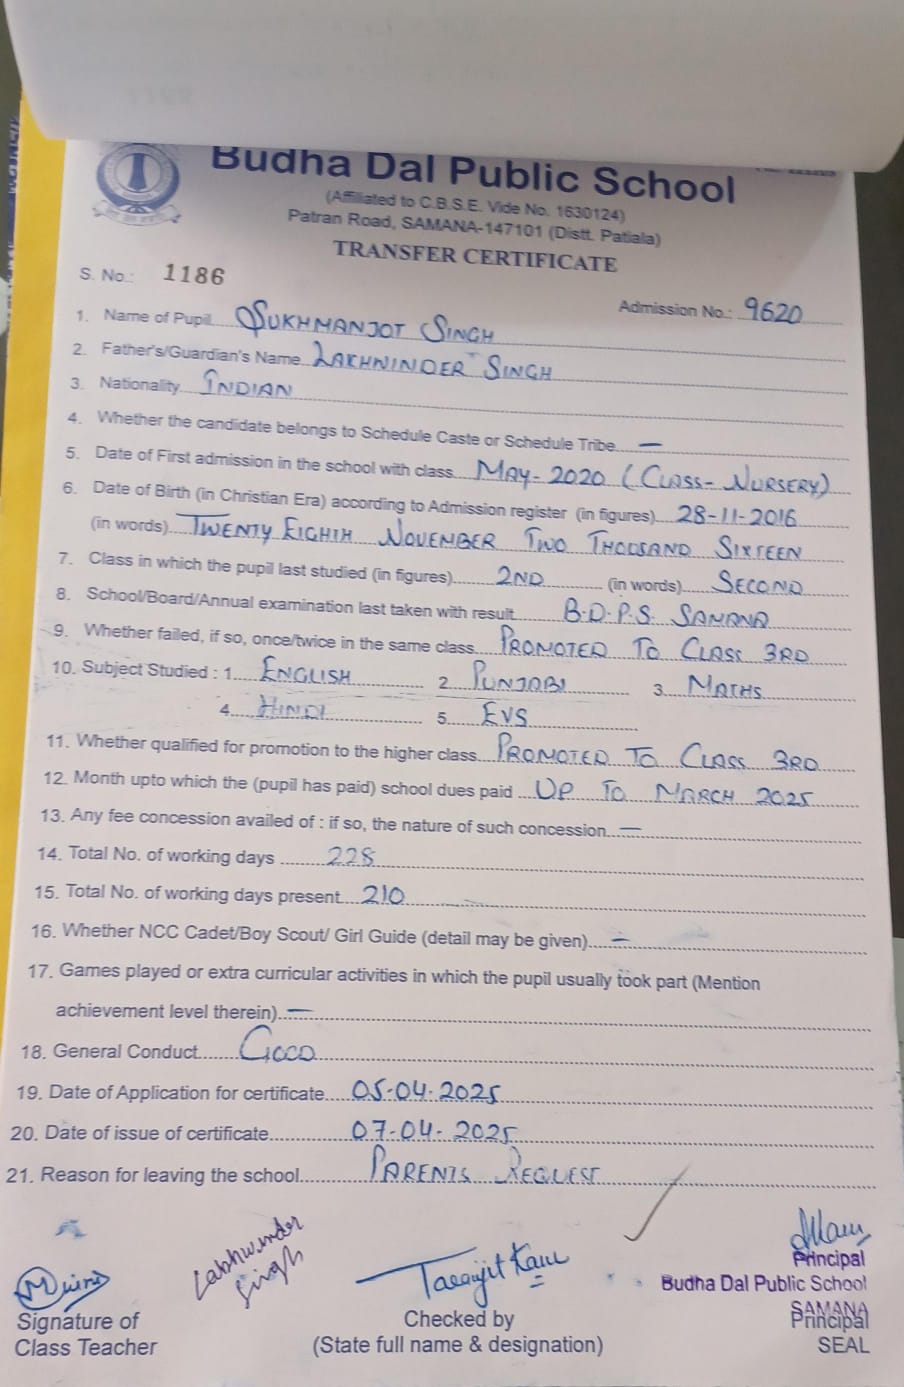 Budha Dal Public School
(Affiliated to C.B.S.E. Vide No. 1630124)
Patran Road, SAMANA-147101 (Distt. Patiala)
TRANSFER CERTIFICATE
S. No.: 1186
Admission No.: 9620
1. Name of Pupil SUKHMANJOT SINGH
2. Father's/Guardian's Name LAKHWINDER SINGH
3. Nationality INDIAN
4. Whether the candidate belongs to Schedule Caste or Schedule Tribe —
5. Date of First admission in the school with class MAY-2020 (CLASS-NURSERY)
6. Date of Birth (in Christian Era) according to Admission register (in figures) 28-11-2016
(in words) TWENTY EIGHTH NOVEMBER TWO THOUSAND SIXTEEN
7. Class in which the pupil last studied (in figures) 2ND (in words) SECOND
8. School/Board/Annual examination last taken with result B.D.P.S. SAMANA
9. Whether failed, if so, once/twice in the same class PROMOTED TO CLASS 3RD
10. Subject Studied : 1. ENGLISH 2. PUNJABI 3. MATHS
4. HINDI 5. EVS
11. Whether qualified for promotion to the higher class PROMOTED TO CLASS 3RD
12. Month upto which the (pupil has paid) school dues paid UP TO MARCH 2025
13. Any fee concession availed of : if so, the nature of such concession —
14. Total No. of working days 228
15. Total No. of working days present 210
16. Whether NCC Cadet/Boy Scout/ Girl Guide (detail may be given) —
17. Games played or extra curricular activities in which the pupil usually took part (Mention
achievement level therein) —
18. General Conduct GOOD
19. Date of Application for certificate 05-04-2025
20. Date of issue of certificate 07-04-2025
21. Reason for leaving the school PARENTS REQUEST
Lakhwinder
Singh
Taranjit Kaur
Principal
Budha Dal Public School
SAMANA
Signature of
Class Teacher
Checked by
(State full name & designation)
Principal
SEAL